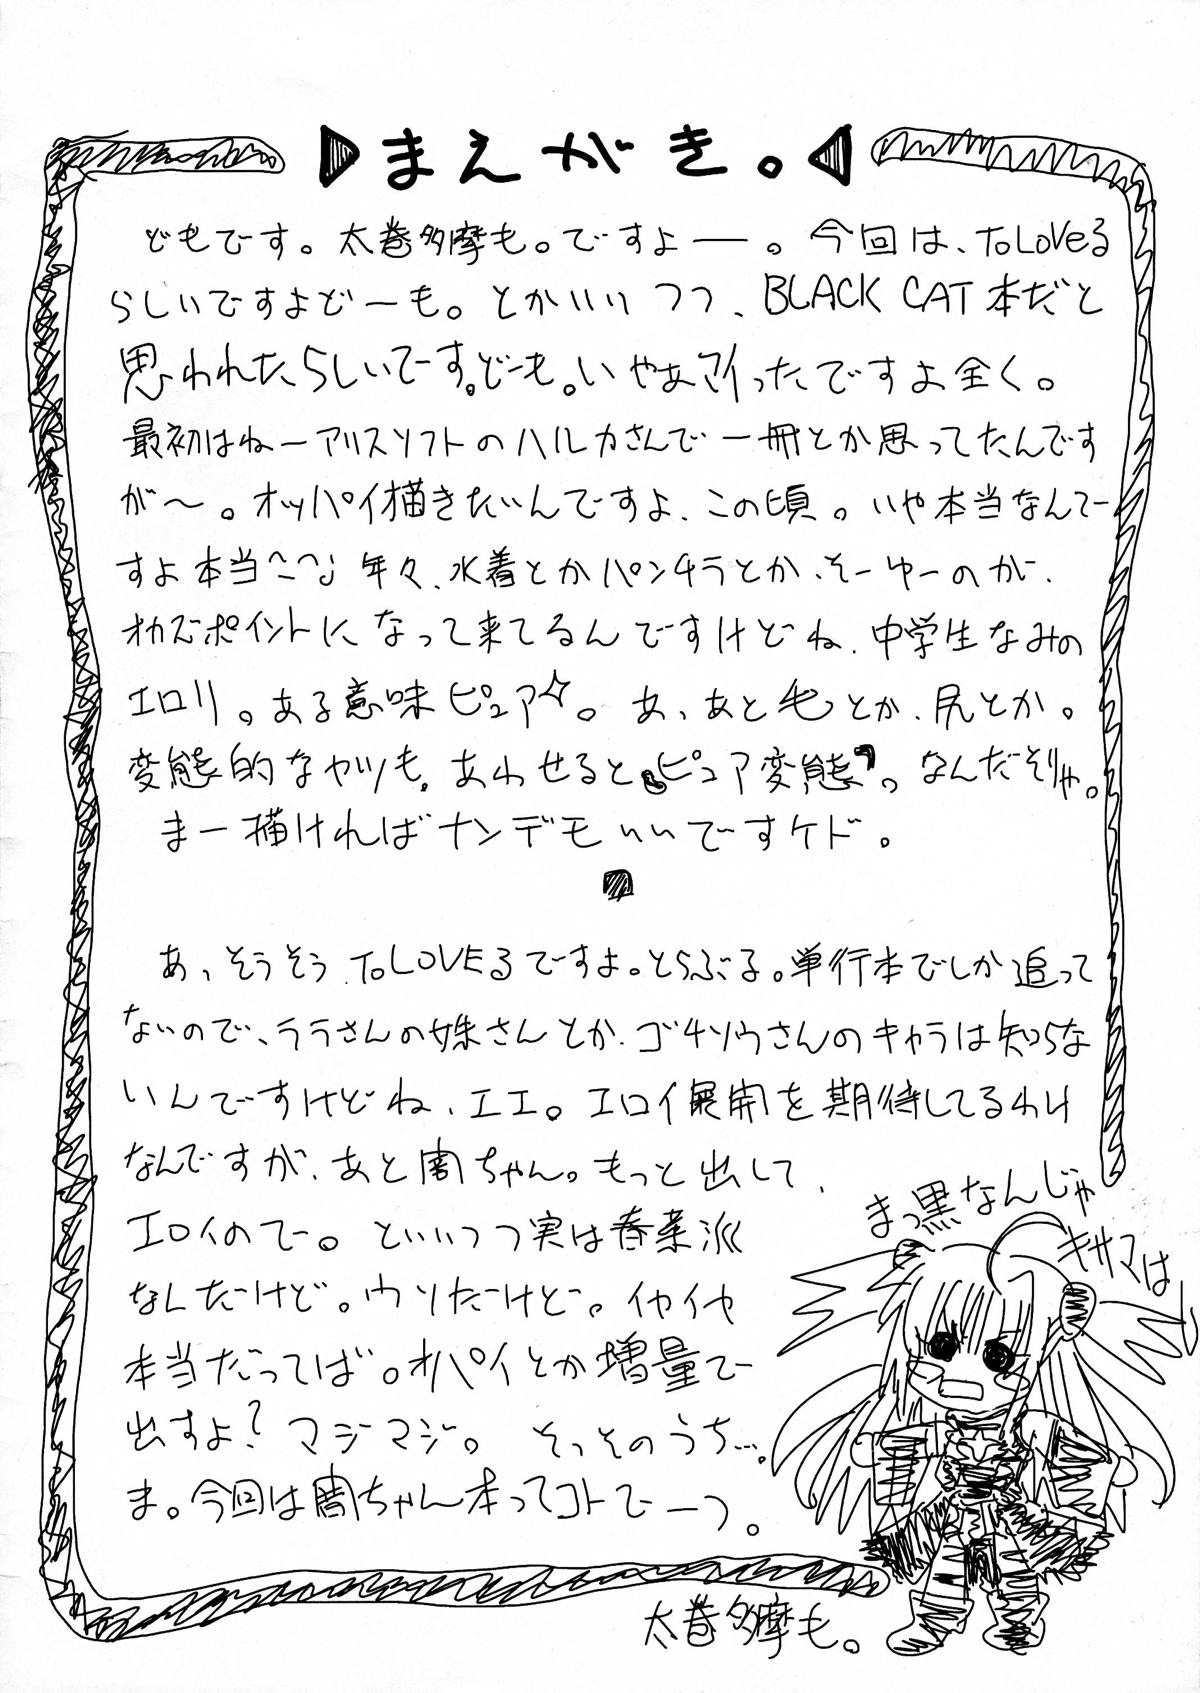 まえがき。
どもです。太巻多摩も。ですよー。今回は、ToLOVEる
らしいですよどーも。とかいいつつ、BLACK CAT本だと
思われたらしいでーす。どーも。いやぁマイったですよ全く。
最初はねーアリスソフトのハルカさんで一冊とか思ってたんです
が〜。オッパイ描きたいんですよ、この頃。いや本当なんでー
すよ本当^^; 年々、水着とかパンチラとか、そーゆーのが、
オカズポイントになって来てるんですけどね、中学生なみの
エロリ。ある意味ピュア☆。あ、あと毛とか、尻とか。
変態的なヤツも。あわせると「ピュア変態」。なんだそりゃ。
まー描ければナンデモいいですケド。
あ、そうそう、ToLOVEるですよ。とらぶる。単行本でしか追って
ないので、ララさんの妹さんとか、ゴチソウさんのキャラは知らな
いんですけどね、エエ。エロイ展開を期待してるわけ
なんですが、あと闇ちゃん。もっと出して、
エロイのでー。といいつつ実は春菜派
なんだけど。ウソだけど。イヤイヤ
本当だってば。オパイとか増量で
出すよ?マジマジ。そっそのうち…。
ま。今回は闇ちゃん本ってコトでーっ。
まっ黒なんじゃ
キサマはー
太巻多摩も。